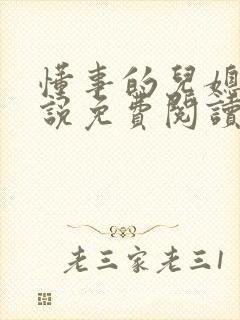 懂事的兒媳
說免費閱讀
老三家老三1